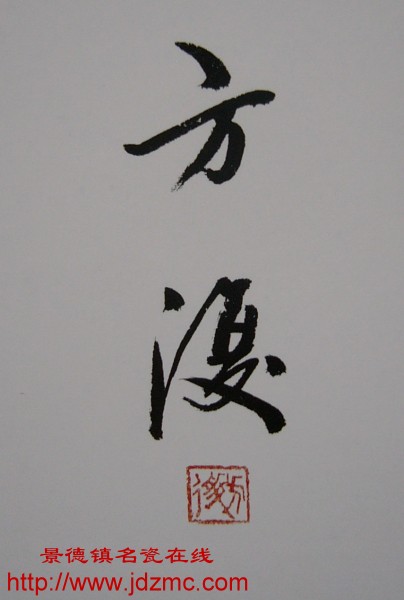 方
復
景德镇名瓷在线
http://www.jdzmc.com